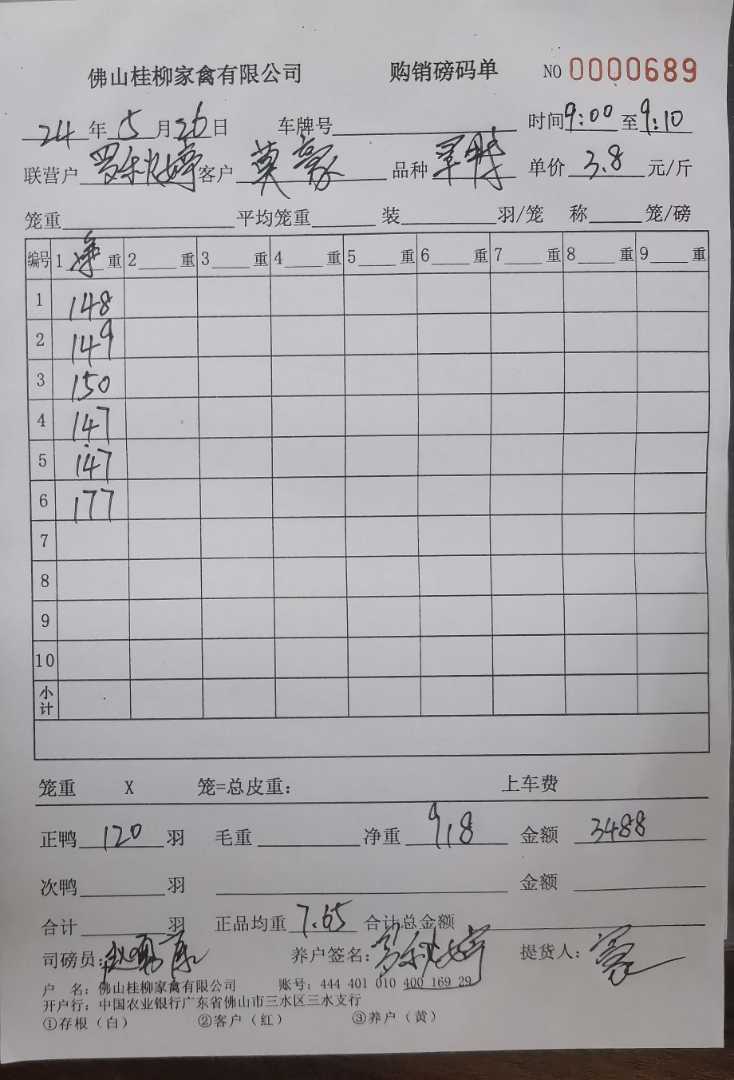 佛山桂柳家禽有限公司 购销磅码单 NO 0000689
24年5月26日 车牌号 时间9:00至9:10
联营户 罗 客户 莫豪 品种 单价 3.8 元/斤
笼重 平均笼重 装 羽/笼 称 笼/磅
编号 1 净 重 2 重 3 重 4 重 5 重 6 重 7 重 8 重 9 重
1 148
2 149
3 150
4 147
5 147
6 177
7
8
9
10
小计
笼重 X 笼=总皮重： 上车费
正鸭 120 羽 毛重 净重 918 金额 3488
次鸭 羽 金额
合计 羽 正品均重 7.65 合计总金额
司磅员： 养户签名：罗 提货人：豪
户 名：佛山桂柳家禽有限公司 账号：444 401 010 400 169 29
开户行：中国农业银行广东省佛山市三水区三水支行
①存根（白） ②客户（红） ③养户（黄）